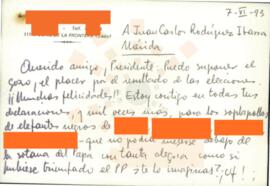 Telf.
7-VI-93
A Juan Carlos Rodríguez Ibarra
Mérida
Querido amigo, Presidente: Puedo suponer el
gozo y el placer por el resultado de las elecciones.
¡¡Muchas felicidades!! Estoy contigo en todas tus
declaraciones, y mil veces más, para los soplapollas
de elefantes negros de
que no podía mearse debajo de
la sotana del Papa con tanta alegría como si
hubiese triunfado el PP ¿te lo imaginas?